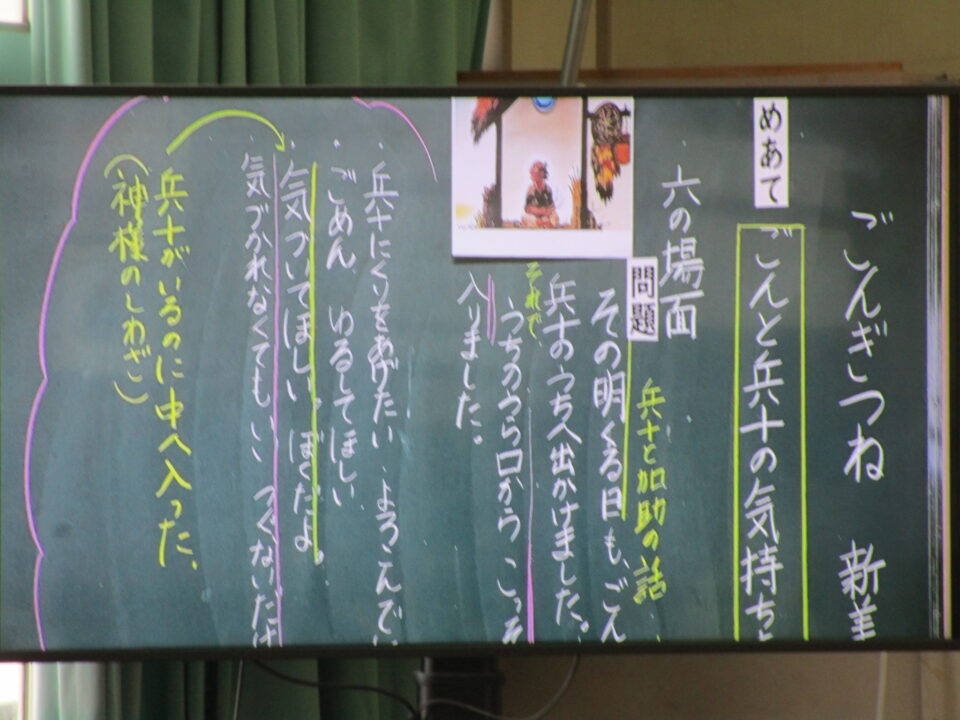 ごんぎつね 新美
めあて
ごんと兵十の気持ち
六の場面
問題
兵十と加助の話
その明くる日も、ごん
兵十のうちへ出かけました。
それで、
うちのうら口から こっそ
入りました。
兵十にくりをあげたい よろこんで
ごめん ゆるしてほしい
気づいてほしい。ぼくだよ。
気づかれなくてもいい つぐないだけ
兵十がいるのに中へ入った。
(神様のしわざ)